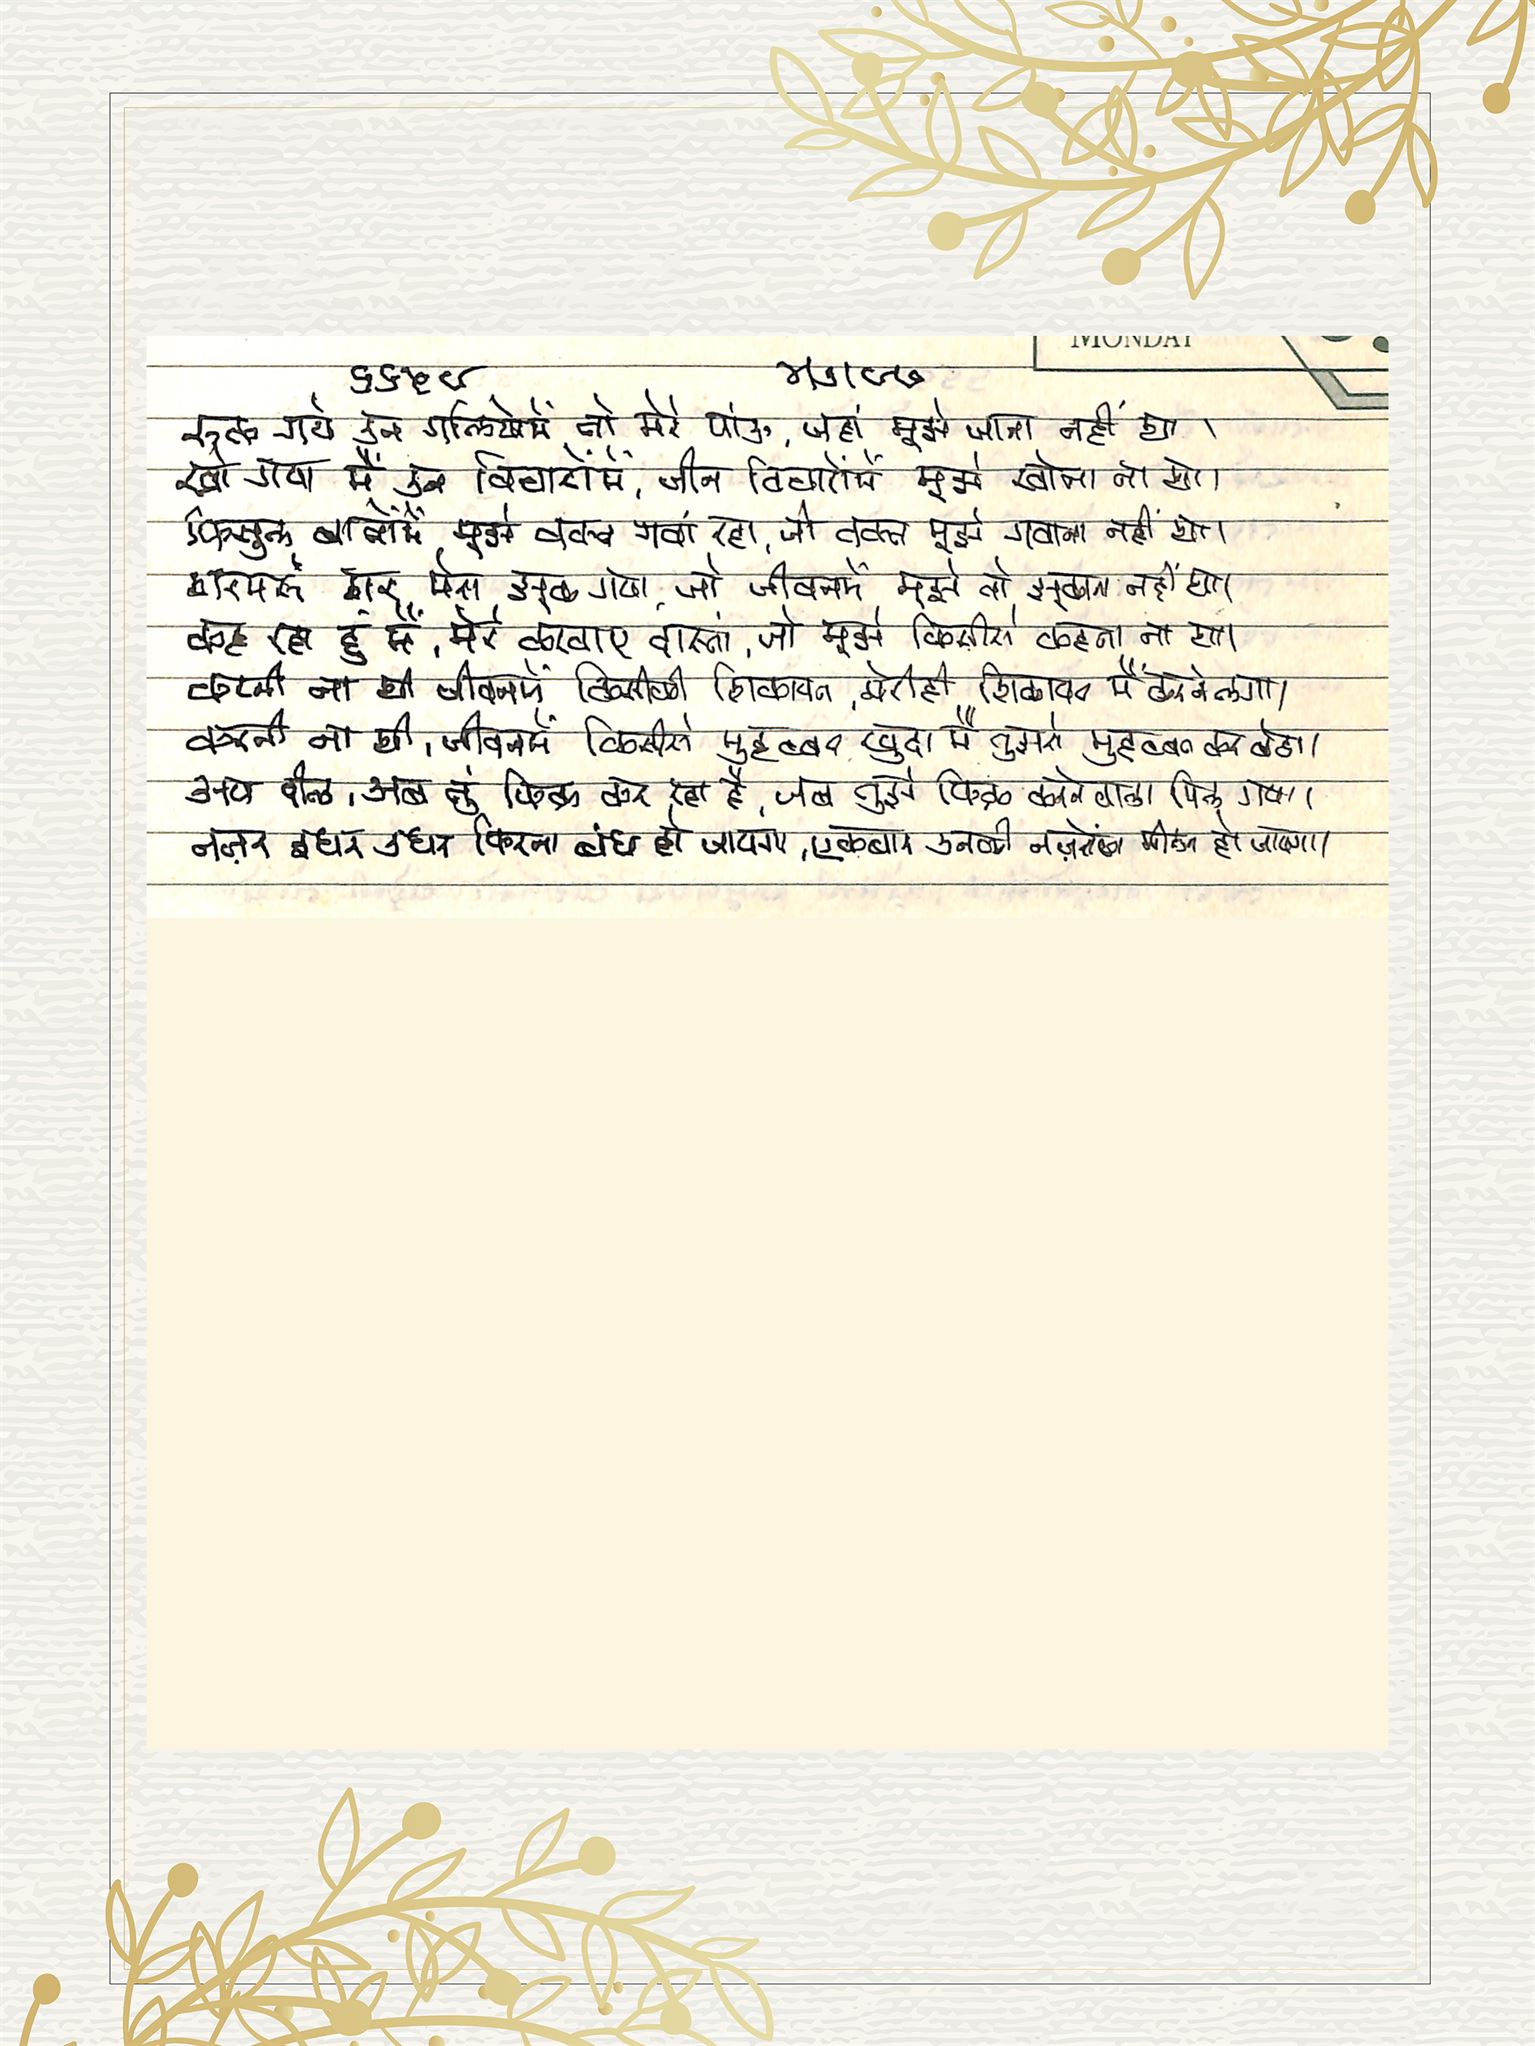 MONDAY
रुक गये उन गलियोंमें तो मेरे पांऊ, जहां मुझे जाना नहीं था ।
खो गया मैं उन विचारोंमें, जीन विचारोंमें मुझे खोना ना था।
फिजुल बातोंमें मुझे वक्त गवां रहा, जो वक्त मुझे गवाना नहीं था।
झुक गया, जो जीवनमें मुझे तो झुकाना नहीं था।
कह रहा हुं मैं, मेरे दास्तां, जो मुझे किसीसे कहना ना था।
करनी ना थी जीवनमें किसीकी शिकायत, मेरीही शिकायत मैं करने लगा।
करनी ना थी, जीवनमें किसीसे मुहब्बत खुदा मैं तुझसे मुहब्बत कर बेठा।
अब तुं फिक्र कर रहा है, जब तुझे फिक्र करने वाला मिल गया।
नज़र इधर उधर फिरना बंध हो जायगा, एकबार उनकी नज़रोंका हो जायगा।